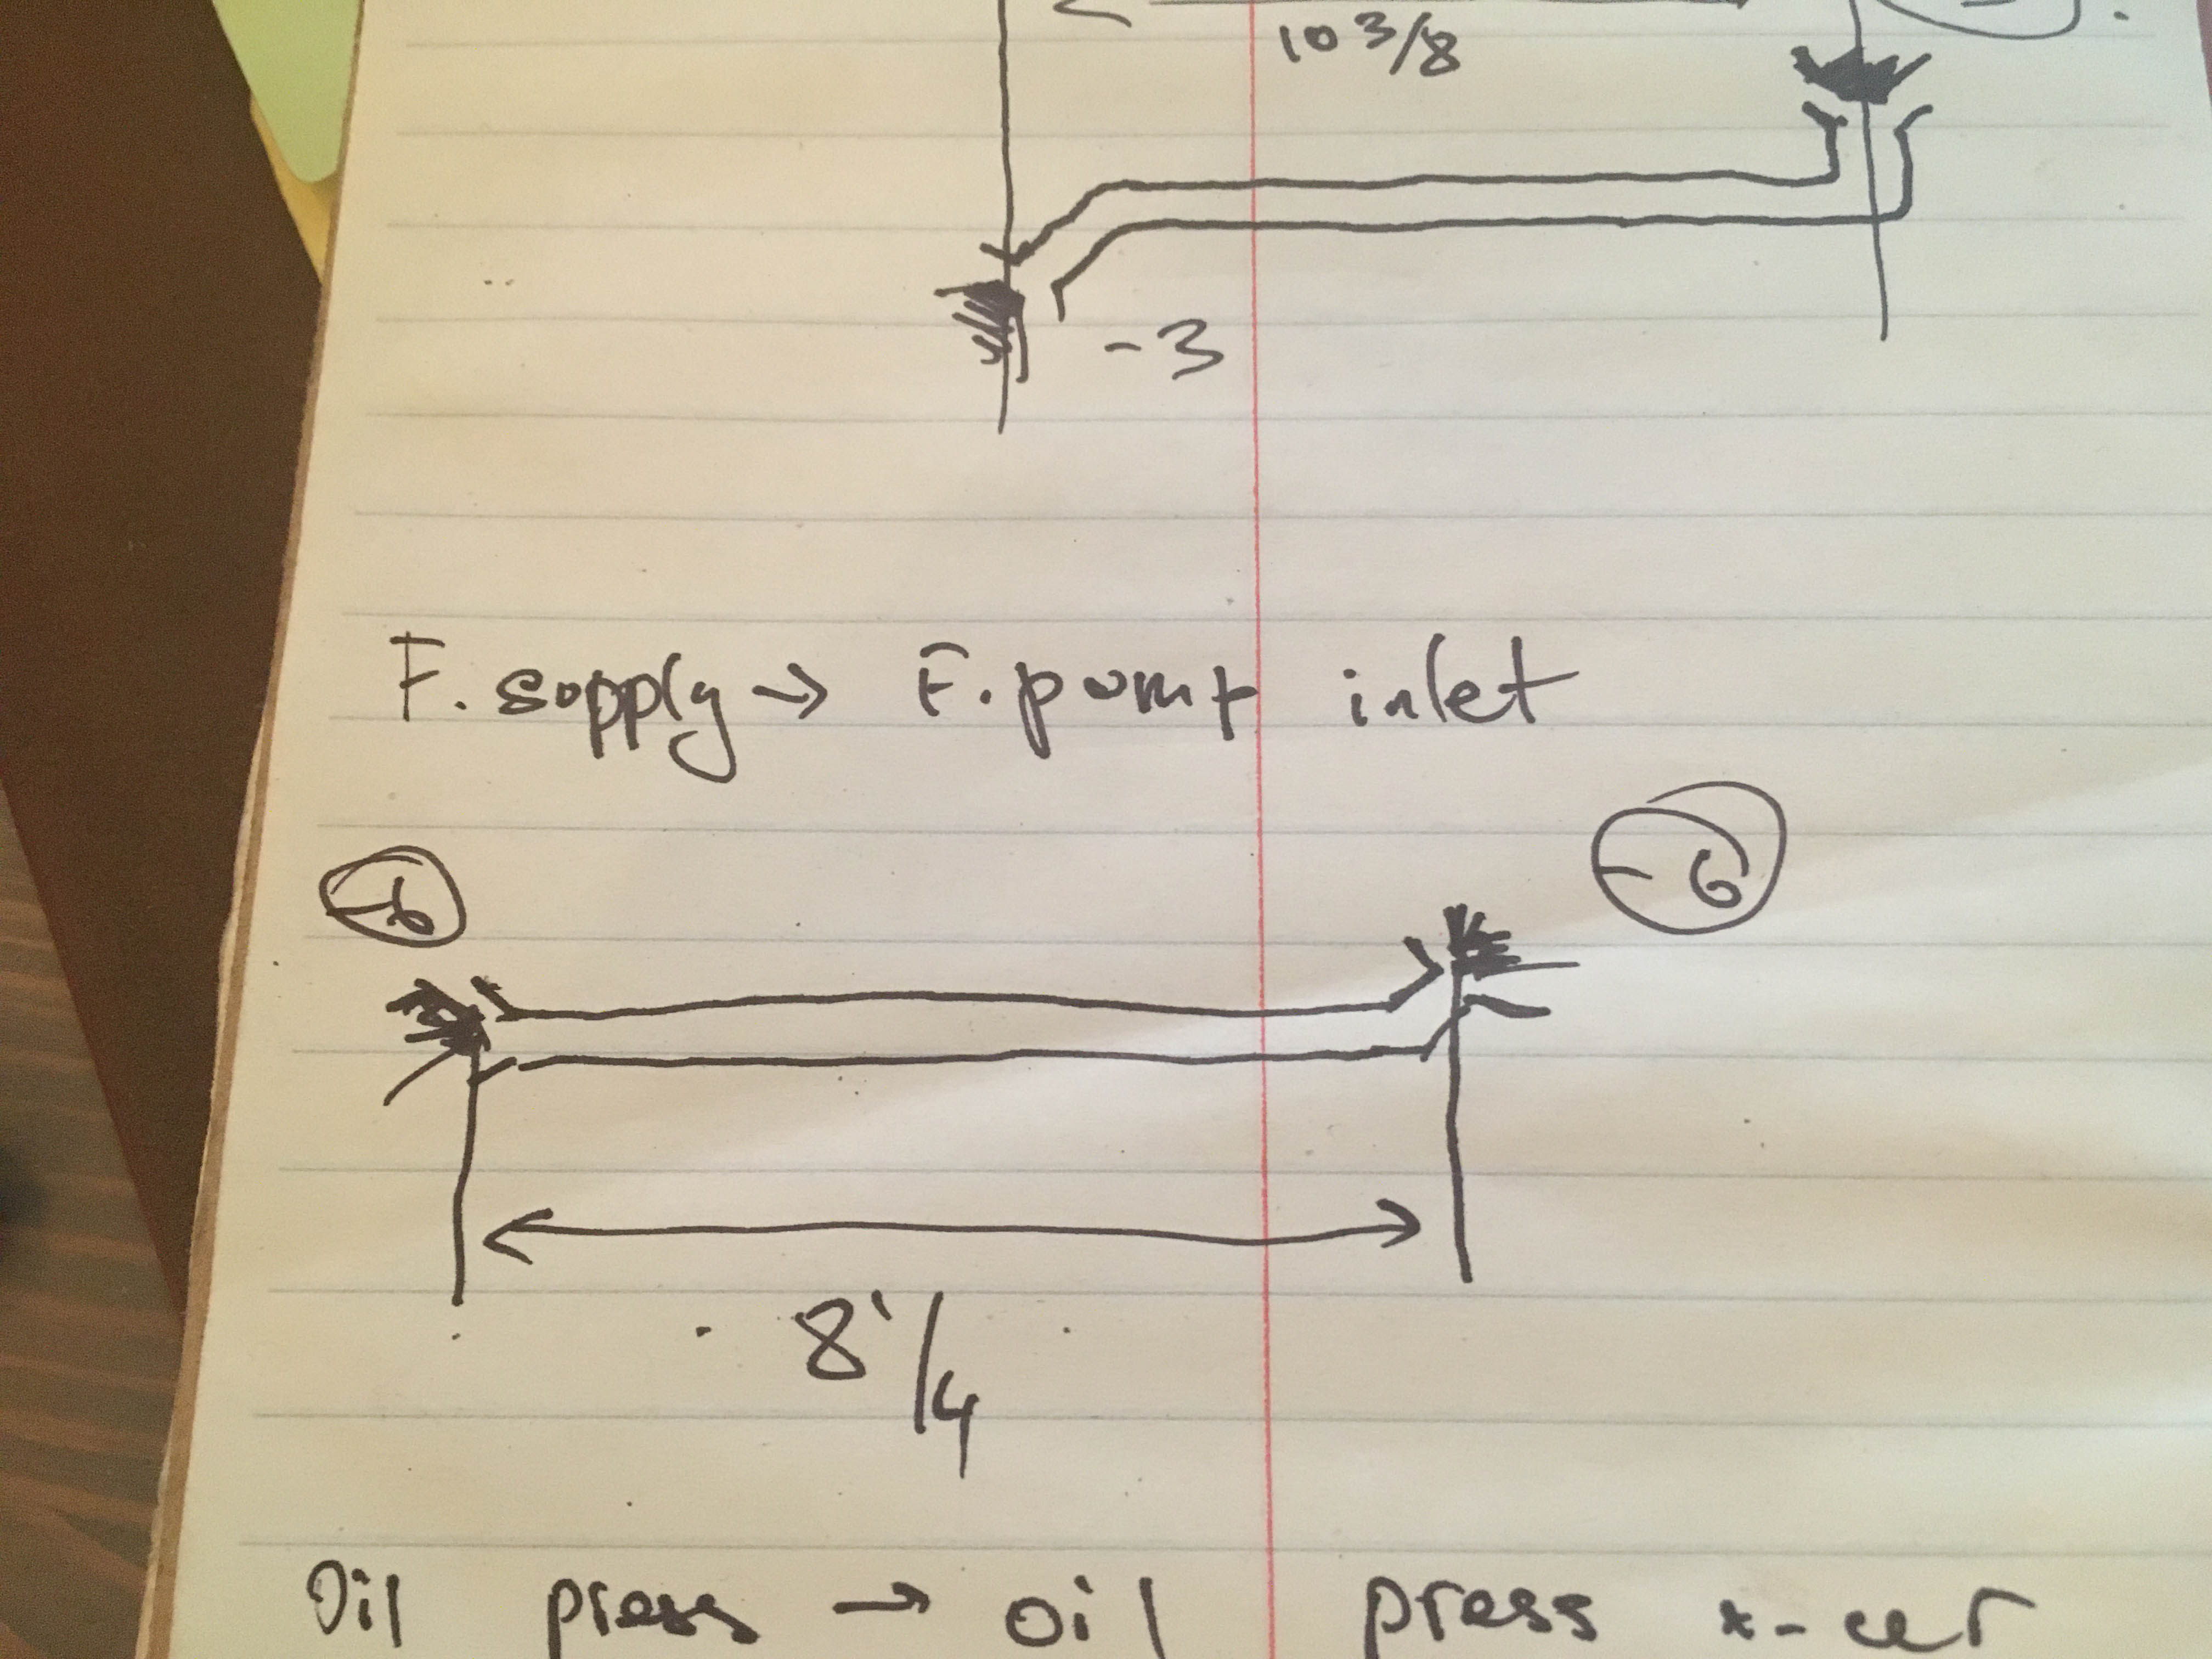 10 3/8
-3
F. supply → F. pump inlet
-6
-6
8 1/4
Oil press → oil press x-cer